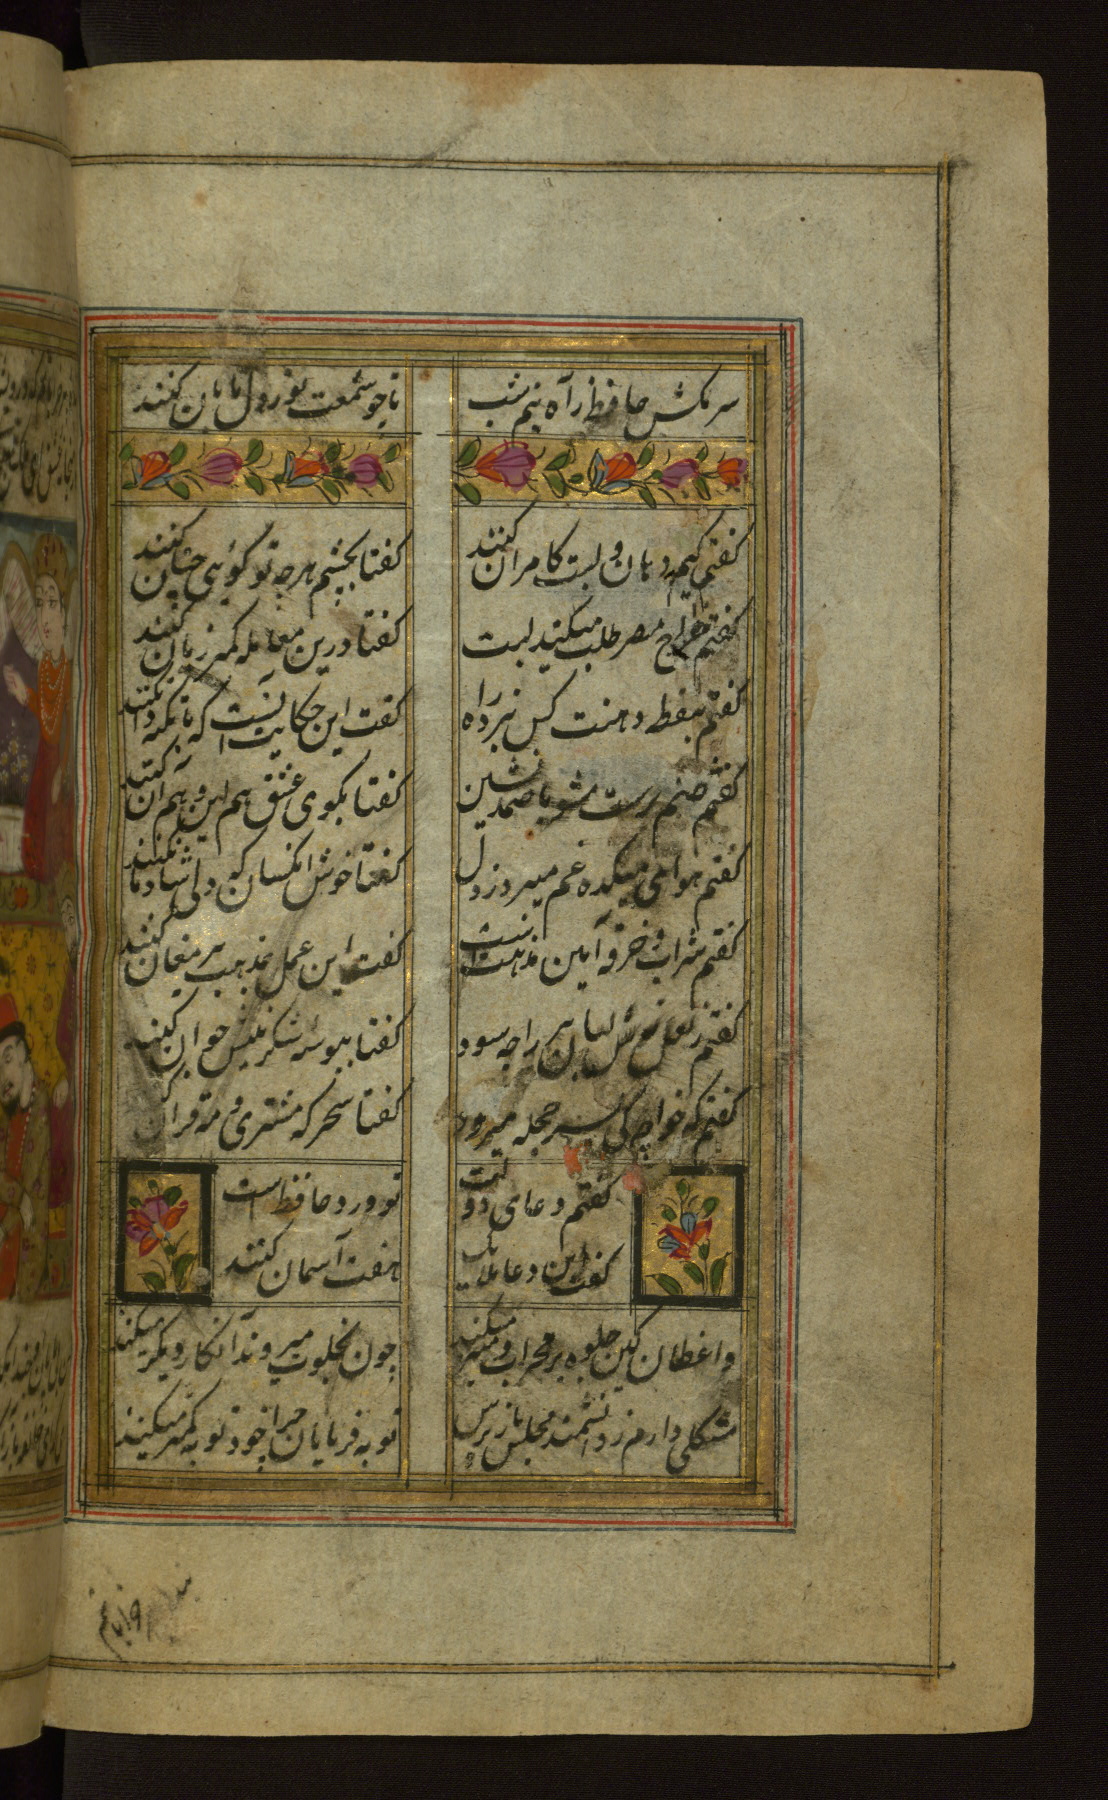 سر مکش حافظ ز آه نیم شب
تا چو شمعت نور دل تابان کنند
گفتم کیم دهان و لبت کامران کنند
گفتا بچشم هر چه تو گوئی چنان کنند
گفتم خراج مصر طلب میکند لبت
گفتا درین معامله کمتر زیان کنند
گفتم بنقطه دهنت کس نبرد راه
گفت این حکایتیست که با نکته دان کنند
گفتم صنم پرست مشو با صمد نشین
گفتا بکوی عشق هم این و هم آن کنند
گفتم هوای میکده غم میبرد ز دل
گفتا خوش آنکسان که دلی شادمان کنند
گفتم شراب و خرقه نه آیین مذهبست
گفت این عمل بمذهب پیر مغان کنند
گفتم ز لعل نوش لبان پیر را چه سود
گفتا ببوسه شکرینش جوان کنند
گفتم که خواجه کی بسر حجله میرود
گفتا سحر که مشتری و مه قران کنند
گفتم دعای دولت
تو ورد حافظ است
گفت این دعا ملایک
هفت آسمان کنند
واعظان کین جلوه بر محراب و منبر میکنند
چون بخلوت میروند آن کار دیگر میکنند
مشکلی دارم ز دانشمند مجلس باز پرس
توبه فرمایان چرا خود توبه کمتر میکنند